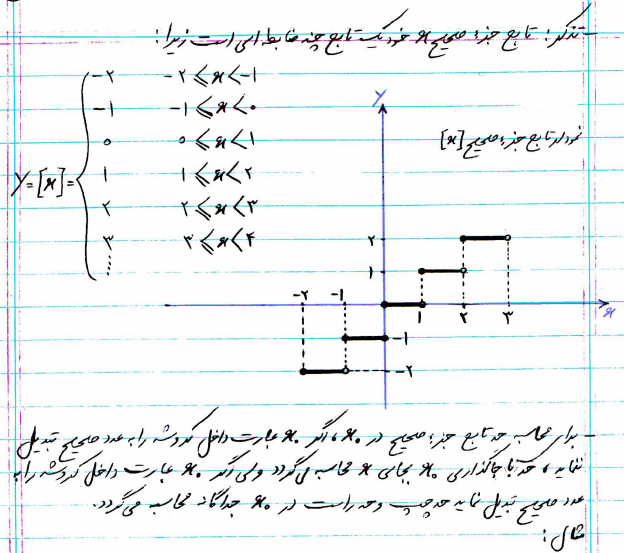 - تذکر: تابع جزء صحیح x خود یک تابع چند ضابطه ای است زیرا:
-۲   -۲ ≤ x < -۱
-۱   -۱ ≤ x < ۰
۰   ۰ ≤ x < ۱
y = [x] =   ۱   ۱ ≤ x < ۲
۲   ۲ ≤ x < ۳
۳   ۳ ≤ x < ۴
⋮
نمودار تابع جزء صحیح [x]
y
۲
۱
-۲ -۱ ۱ ۲ ۳
x
-۱
-۲
- برای محاسبه حد تابع جزء صحیح در x۰، اگر x۰ عبارت داخل کروشه را به عدد صحیح تبدیل
ننماید، حد با جاگذاری x۰ بجای x محاسبه می گردد ولی اگر x۰ عبارت داخل کروشه را به
عدد صحیح تبدیل نماید حد چپ و حد راست در x۰ جداگانه محاسبه می گردد.
مثال: